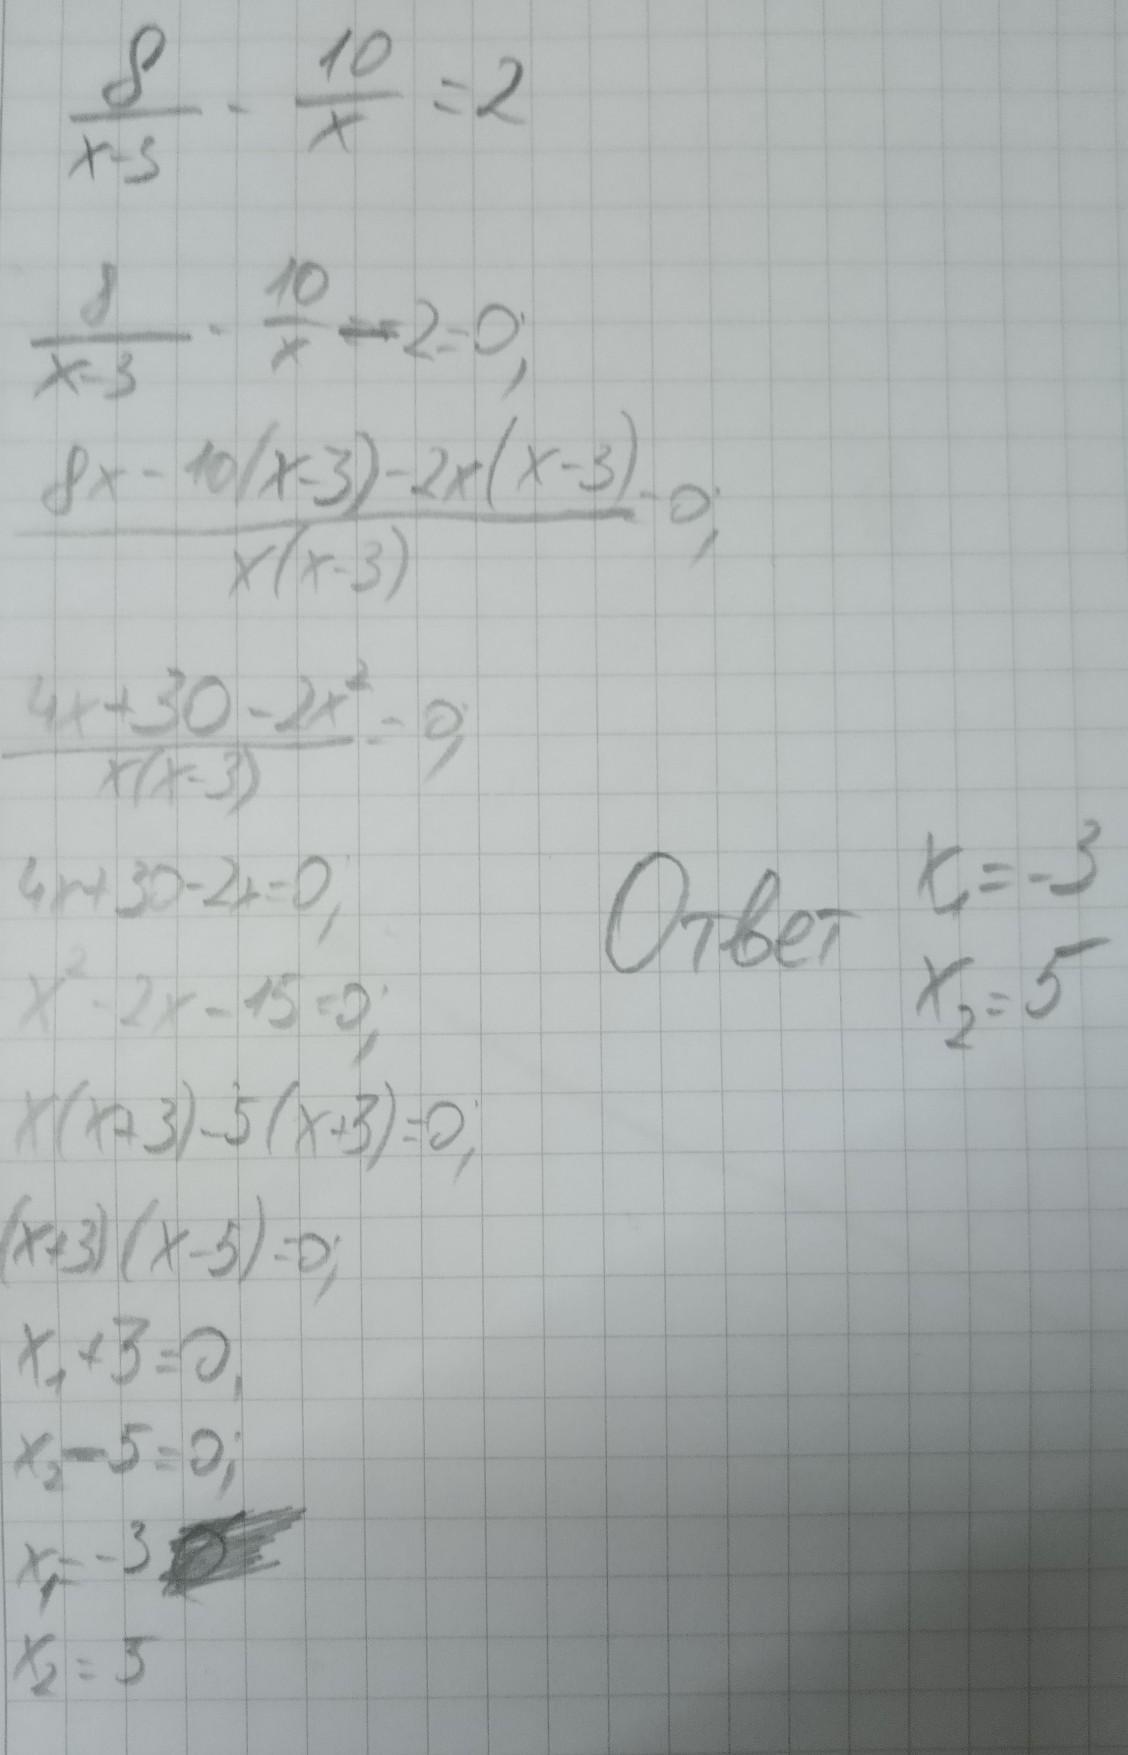 8/(x-3) - 10/x = 2
8/(x-3) - 10/x - 2 = 0;
(8x - 10(x-3) - 2x(x-3))/(x(x-3)) = 0;
(4x + 30 - 2x²)/(x(x-3)) = 0;
4x + 30 - 2x = 0;
x² - 2x - 15 = 0;
x(x+3) - 5(x+3) = 0;
(x+3)(x-5) = 0;
x₁ + 3 = 0,
x₂ - 5 = 0;
x₁ = -3
x₂ = 5
Ответ x₁ = -3
x₂ = 5